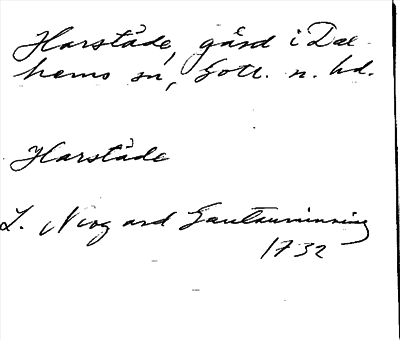 Harstäde, gård i Dal-
hems sn, Gotl. n. hd.
Harstäde
L. Neogard Gautauminning
1732